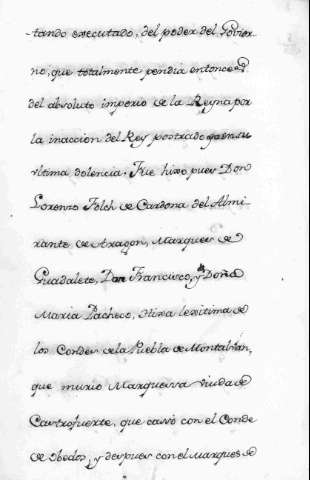 -tando executado, del poder del Govier-
no, que totalmente pendia entonces
del absoluto imperio de la Reyna por
la inaccion del Rey postrado ya en su
vltima dolencia. Fue hixo pues Don
Lorenzo Folch de Cardona del Almi-
rante de Aragon, Marques de
Guadaleste, Don Francisco, y de Doña
Maria Pacheco, Hixa lexitima de
los Condes de la Puebla de Montalvan,
que murio Marquessa viuda de
Castrofuerte, que cassò con el Conde
de Obedos, y despues con el Marques de